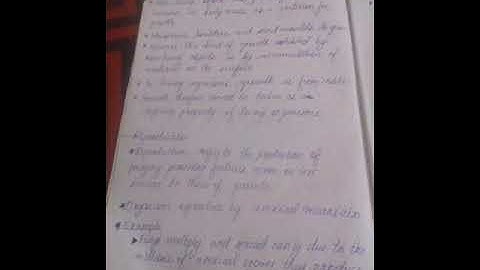 increase in body mass as a criterion for
growth
Mountains, boulders and sand moulds do grow
However, the kind of growth exhibited by
non-living objects is by accumulation of
material on the surface
In living organisms, growth is from inside
growth therefore cannot be taken as a
defining property of living organisms
Reproduction
Reproduction refers to the production of
progeny possesses features more or less
similar to those of parents
Organisms reproduce by asexual means also
Example
Fungi multiply and spread easily due to the
millions of asexual spores they produce